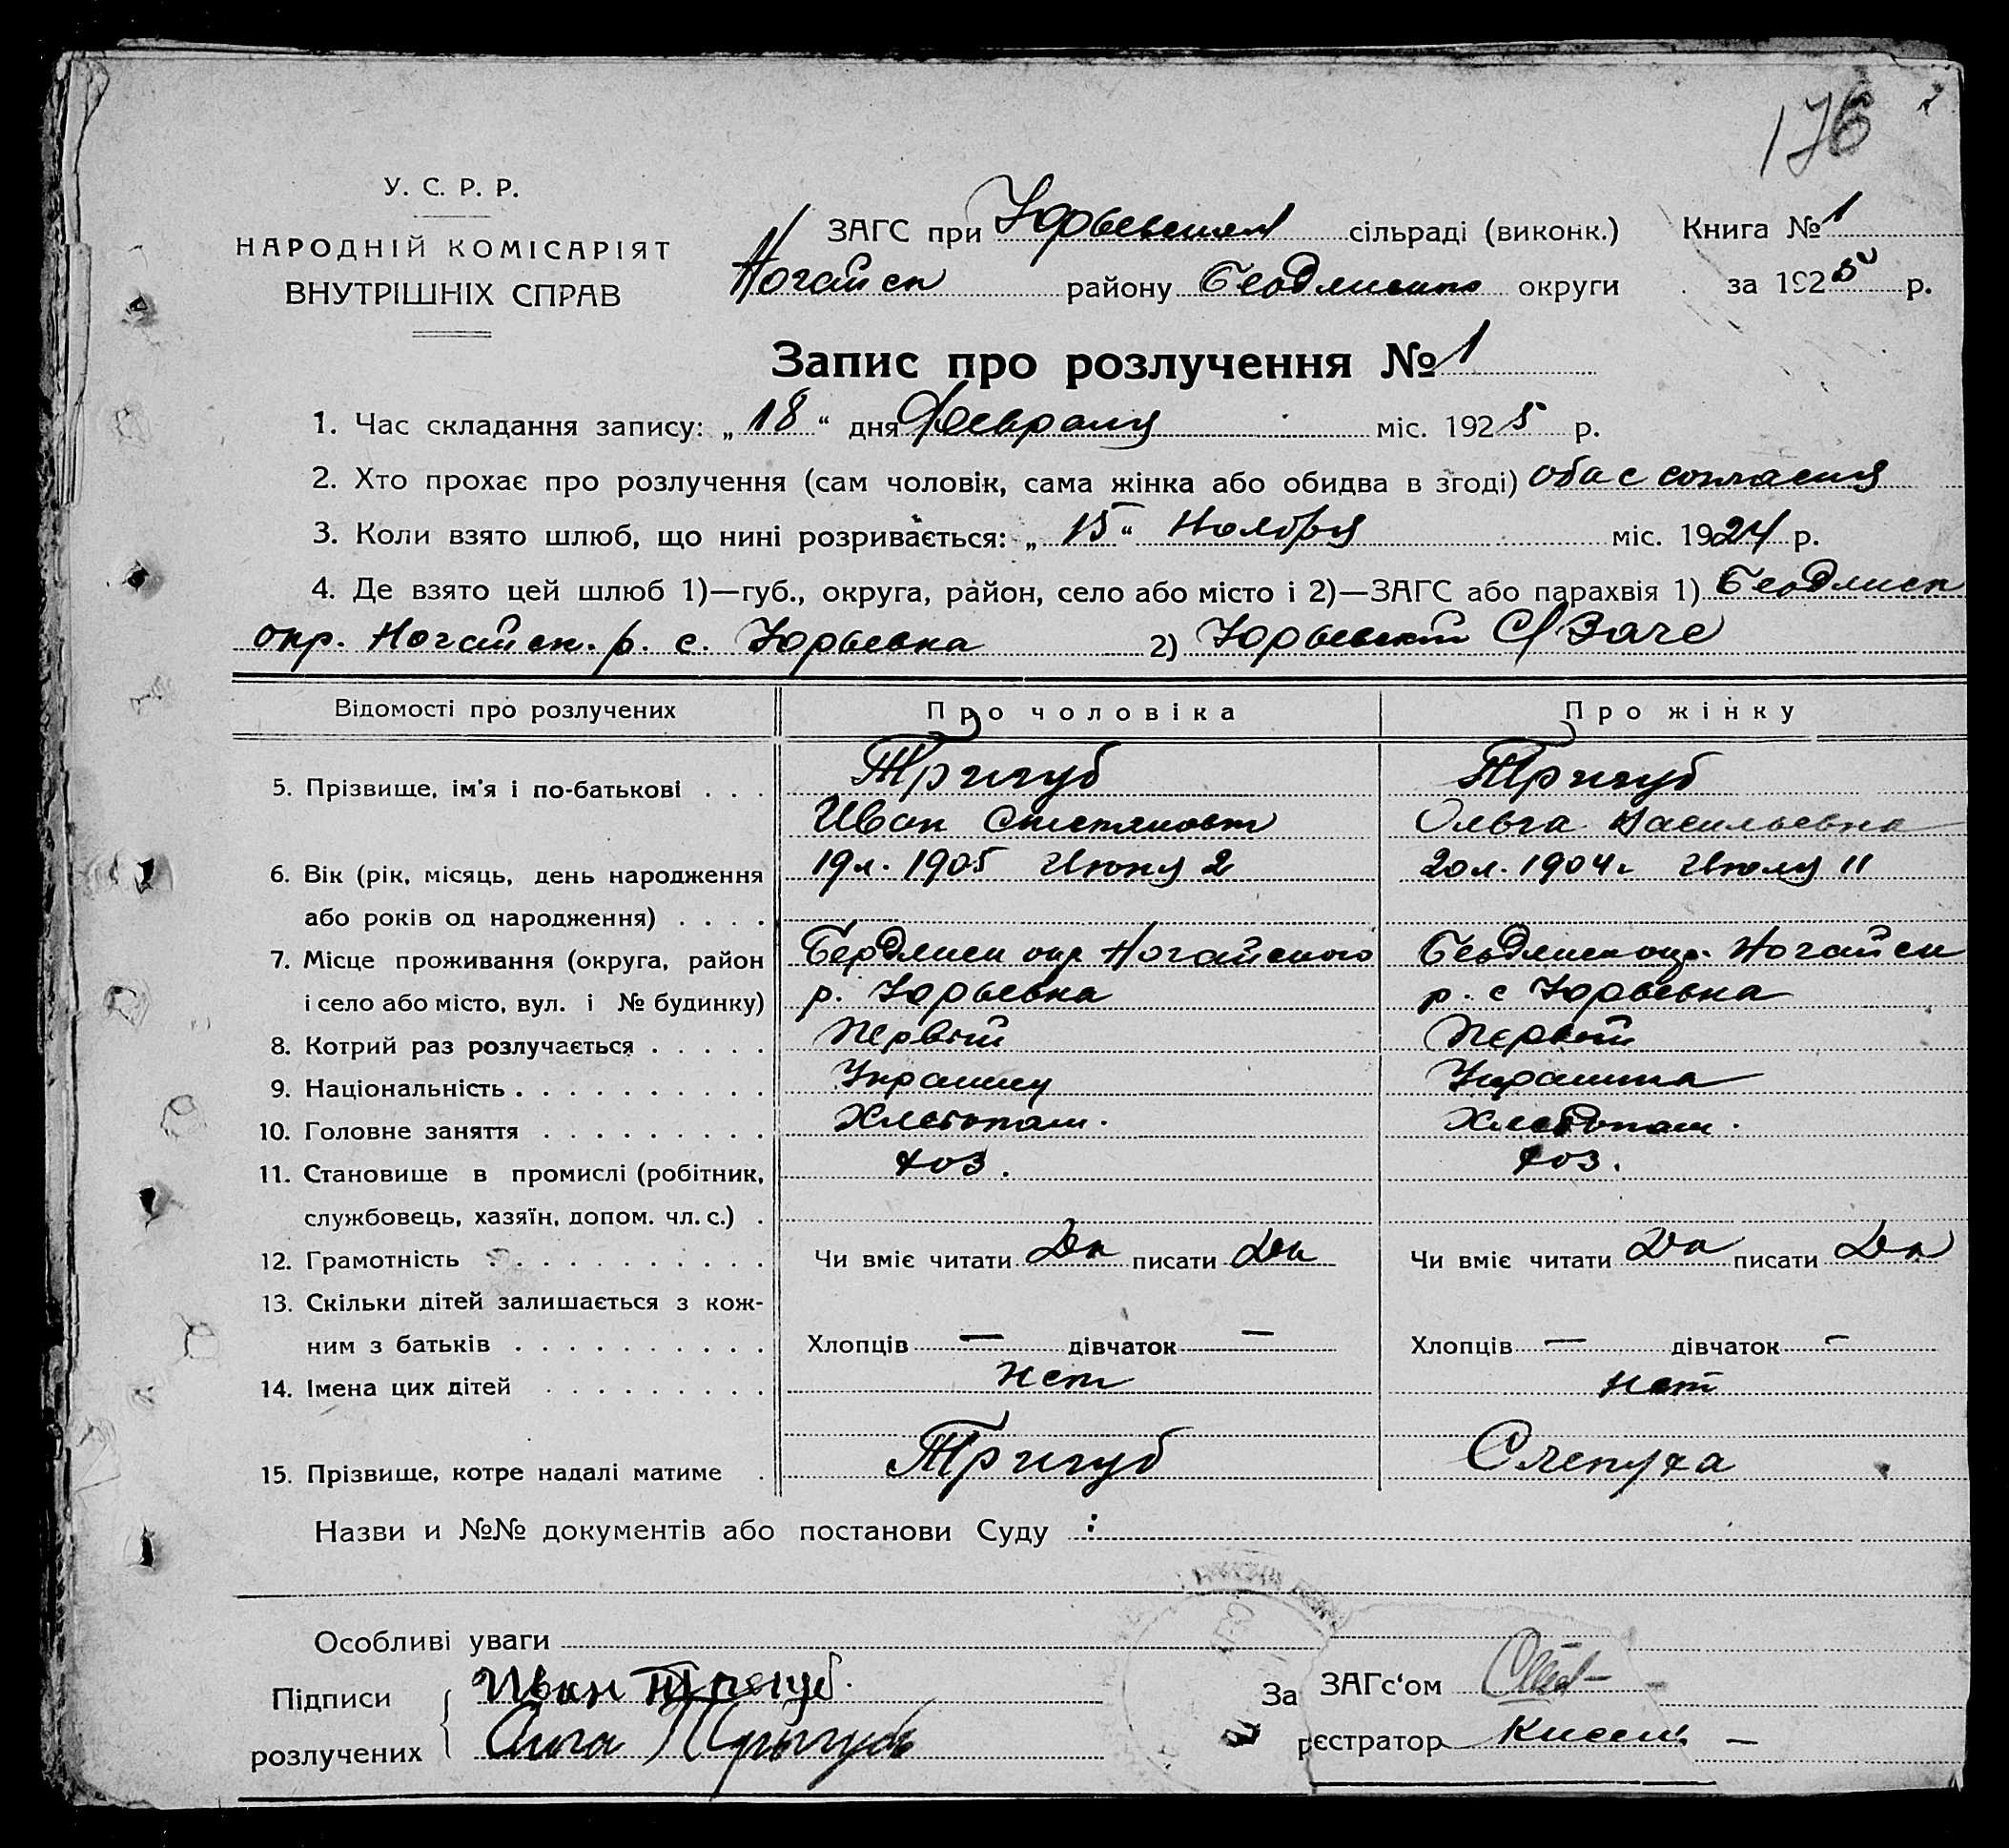 176
У. С. Р. Р.
НАРОДНІЙ КОМІСАРІЯТ
ВНУТРІШНІХ СПРАВ
ЗАГС при Юрьевском сільраді (виконк.) Книга № 1
Ногайск району Бердянского округи за 1925 р.
Запис про розлучення № 1
1. Час складання запису: „18“ дня Февраля міс. 1925 р.
2. Хто прохає про розлучення (сам чоловік, сама жінка або обидва в згоді) оба с согласия
3. Коли взято шлюб, що нині розривається: „15“ Ноября міс. 1924 р.
4. Де взято цей шлюб 1)—губ., округа, район, село або місто і 2)—ЗАГС або парахвія 1) Бердянск
окр. Ногайск. р. с. Юрьевка 2) Юрьевский С/Загс
Відомості про розлучених Про чоловіка Про жінку
5. Прізвище, ім'я і по-батькові . . . Тригуб Тригуб
Иван Степанович Ольга Васильевна
6. Вік (рік, місяць, день народження 19 л. 1905 Июня 2 20 л. 1904 г. Июля 11
або років од народження) . . . .
7. Місце проживання (округа, район Бердянск окр Ногайского Бердянск окр. Ногайск
і село або місто, вул. і № будинку) р. Юрьевка р. с Юрьевка
8. Котрий раз розлучається . . . . . Первый Первый
9. Національність . . . . . . . . . . Украинец Украинка
10. Головне заняття . . . . . . . . . Хлебопаш. Хлебопаш.
11. Становище в промислі (робітник, хоз. хоз.
службовець, хазяїн, допом. чл. с.) .
12. Грамотність . . . . . . . . . . . Чи вміє читати Да писати Да Чи вміє читати Да писати Да
13. Скільки дітей залишається з кож-
ним з батьків . . . . . . . . . . Хлопців — дівчаток — Хлопців — дівчаток —
14. Імена цих дітей . . . . . . . . . нет нет
15. Прізвище, котре надалі матиме . Тригуб Слепуха
Назви и №№ документів або постанови Суду :
Особливі уваги
Підписи Иван Тригуб. За ЗАГс‘ом
розлучених Тригуб рєстратор